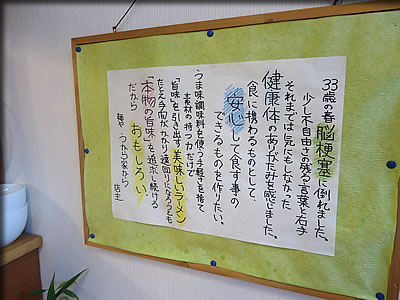 33歳の春脳梗塞に倒れました。
少し不自由さの残る言葉と右手
それまでは気にもしなかった
健康体のありがたみを感じました。
「食」に携わるものとして、
安心して食す事の
できるものを作りたい。
うま味調味料を使う手軽さを捨て
素材の持つ力だけで
「旨味」を引き出す美味しいラーメン
たとえ手間がかかり遠回りになろうとも
「本物の旨味」を追求し続ける
だから おもしろい。
店主